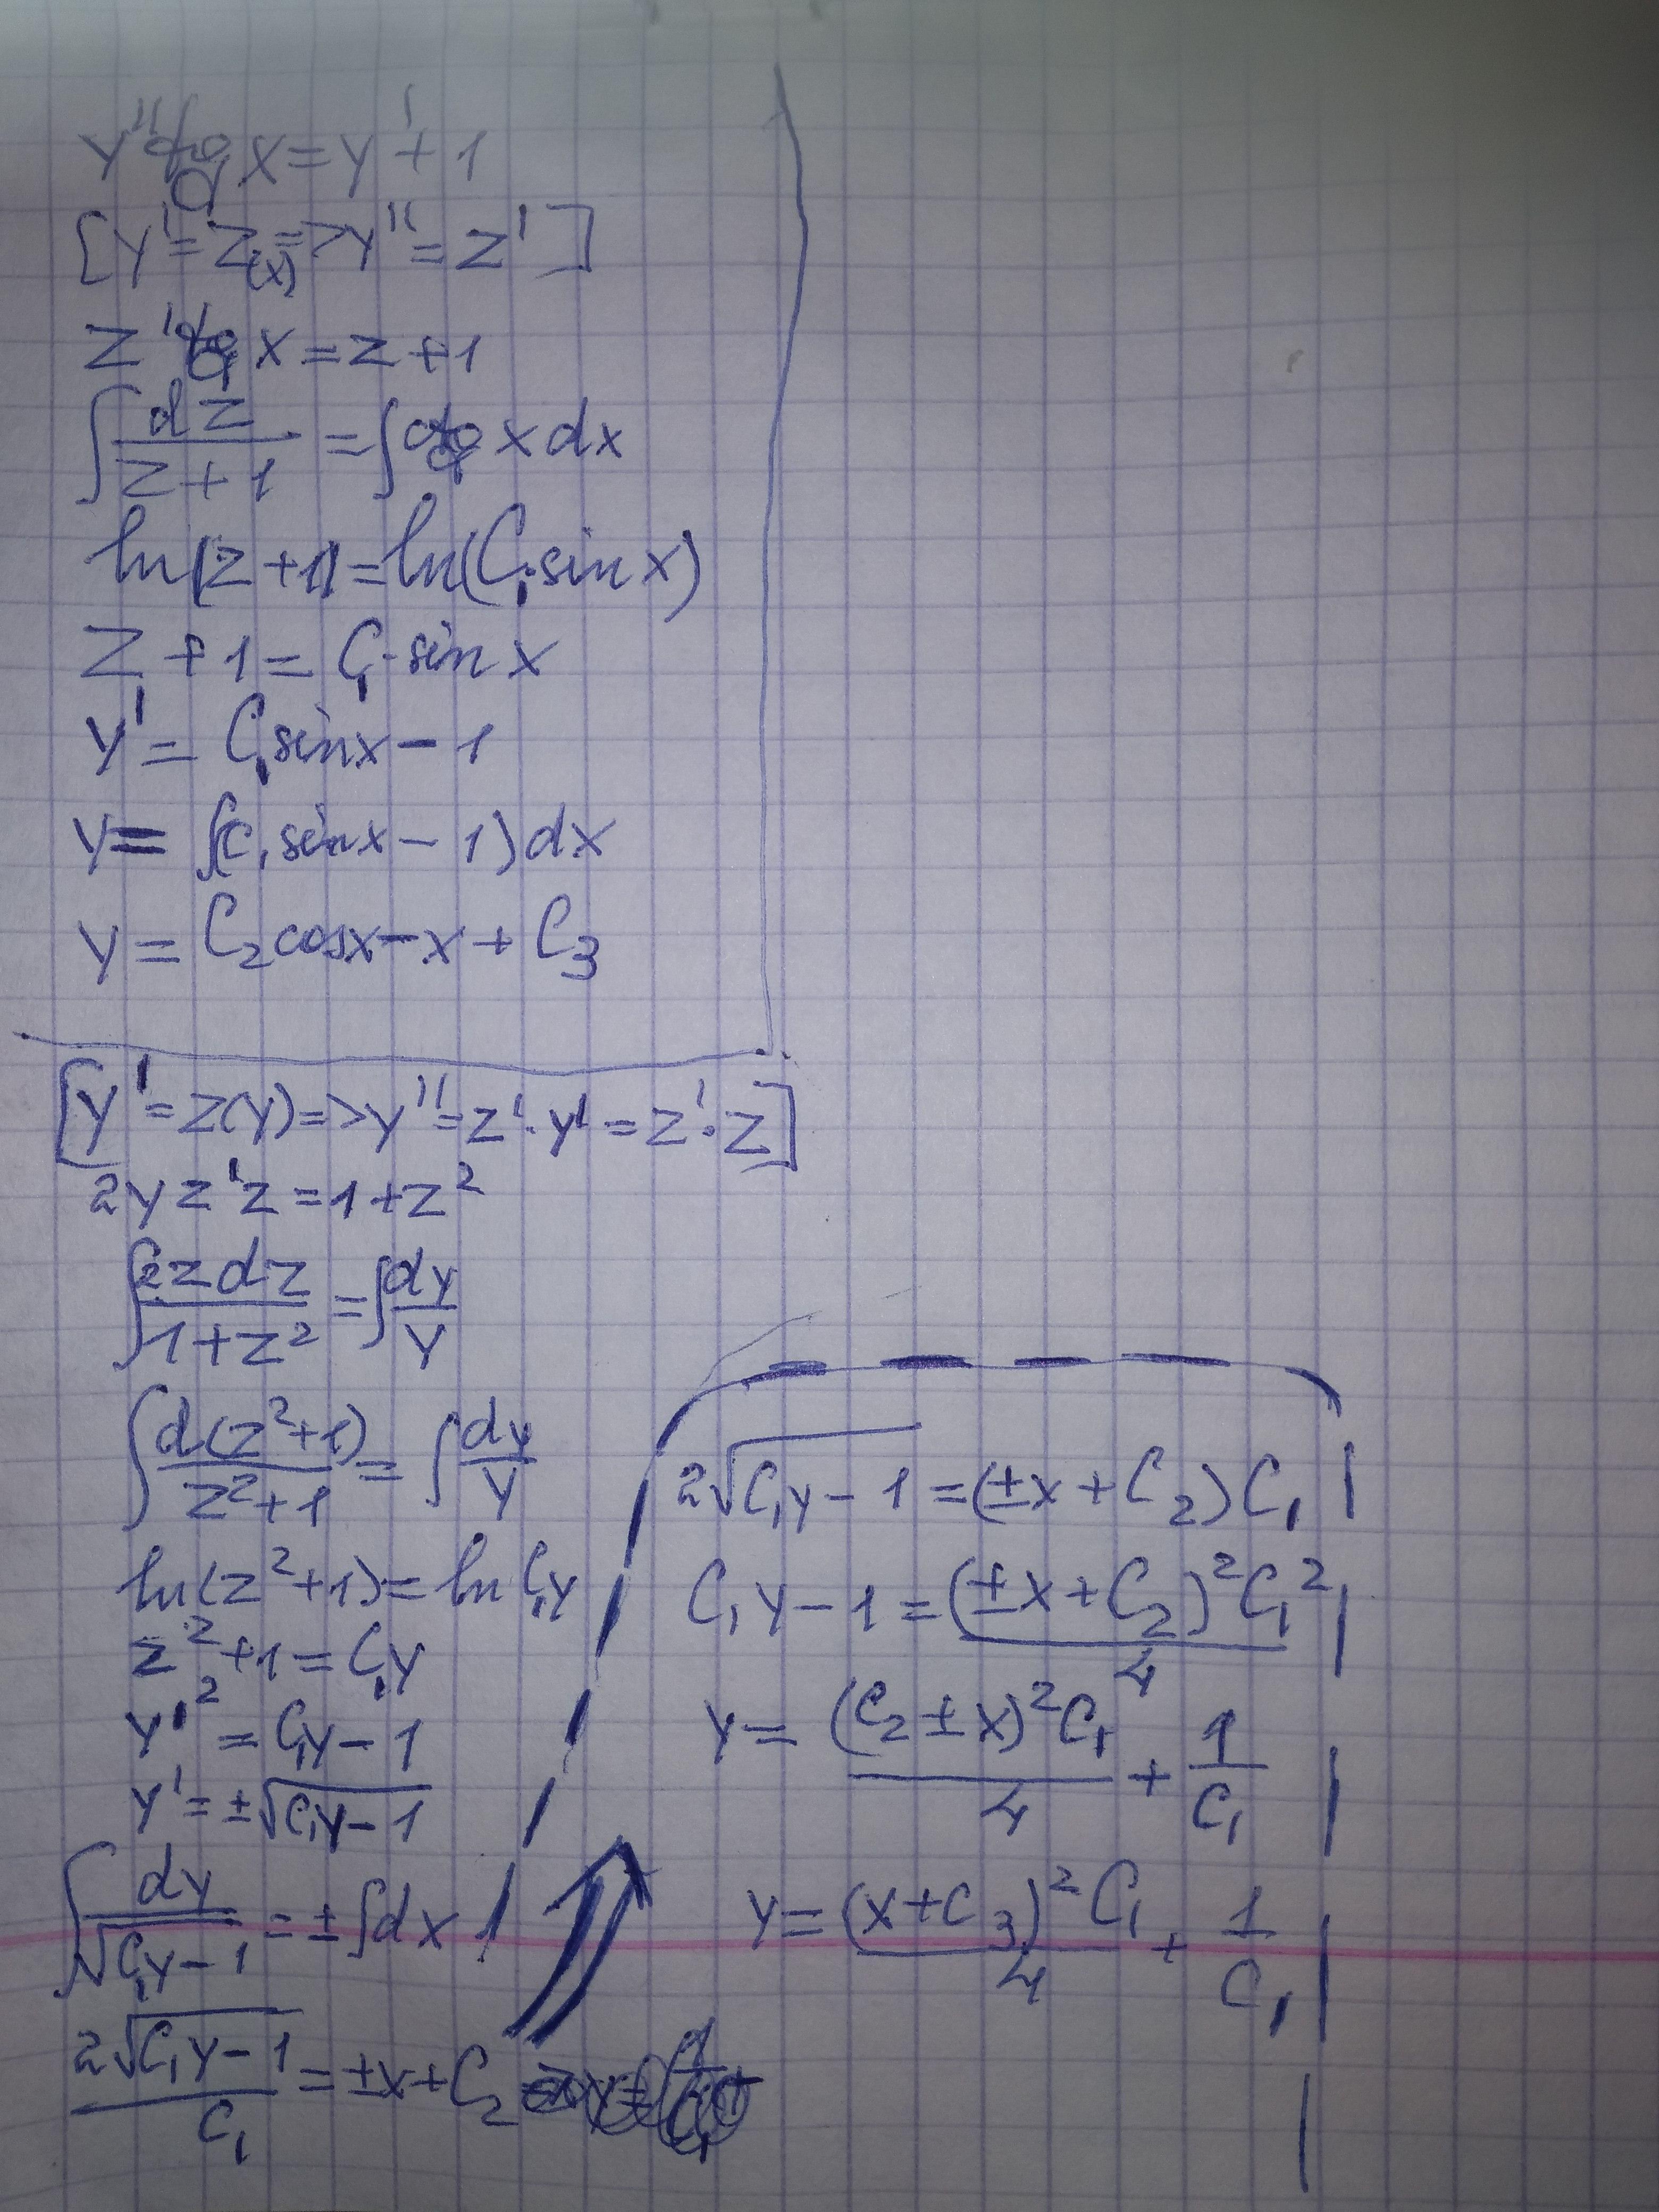 y'' tg x = y' + 1
[y' = z(x) => y'' = z']
z' tg x = z + 1
∫ dz/(z + 1) = ∫ ctg x dx
ln|z + 1| = ln(C₁ · sin x)
z + 1 = C₁ · sin x
y' = C₁ sin x − 1
y = ∫(C₁ sin x − 1) dx
y = C₂ cos x − x + C₃
[y' = z(y) => y'' = z' · y' = z' · z]
2y z' z = 1 + z²
∫ 2z dz/(1 + z²) = ∫ dy/y
∫ d(z² + 1)/(z² + 1) = ∫ dy/y
ln(z² + 1) = ln C₁y
z² + 1 = C₁y
y'² = C₁y − 1
y' = ±√(C₁y − 1)
∫ dy/√(C₁y − 1) = ± ∫ dx
2√(C₁y − 1)/C₁ = ±x + C₂
2√(C₁y − 1) = (±x + C₂) C₁
C₁y − 1 = (±x + C₂)² C₁²/4
y = (C₂ ± x)² C₁/4 + 1/C₁
y = (x + C₃)² C₁/4 + 1/C₁